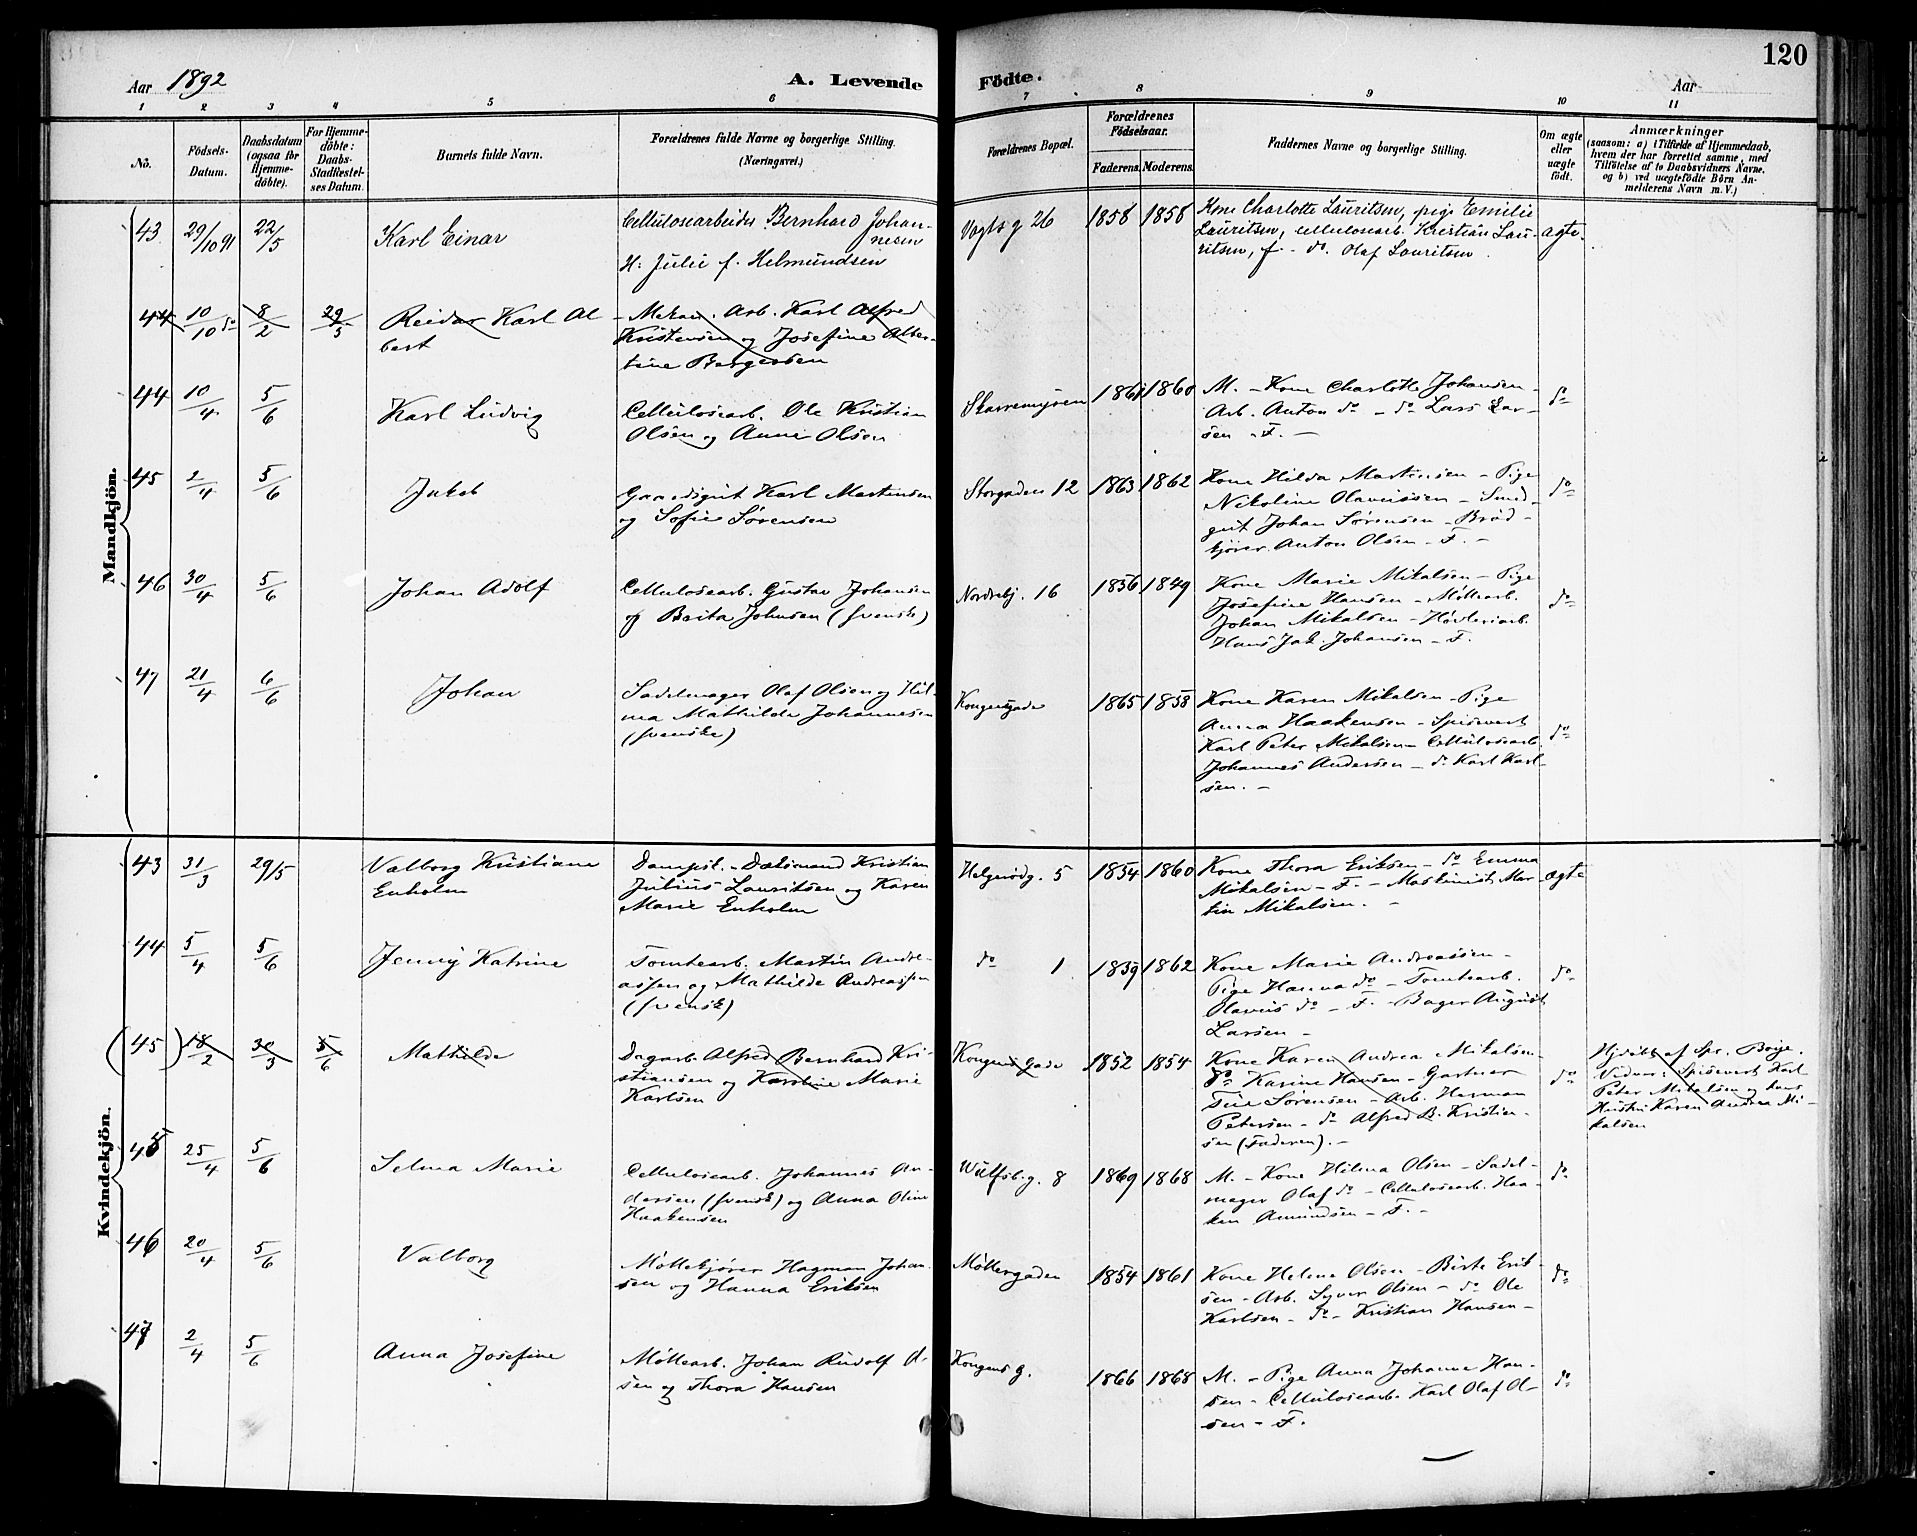 Aar 1892
A. Levende
Födte.
Aar
120
1 2 3 4 5 6 7 8 9 10 11
No.
Födsels-Datum.
Daabsdatum (ogsaa for Hjemmedöbte).
For Hjemmedöbte: Daabs-Stadfæstelses Datum.
Barnets fulde Navn.
Forældrenes fulde Navne og borgerlige Stilling.
(Næringsvei.)
Forældrenes Bopæl.
Forældrenes Födselsaar.
Faderens. Moderens.
Faddernes Navne og borgerlige Stilling.
Om ægte eller uægte födt.
Anmærkninger
(saasom: a) i Tilfælde af Hjemmedaab, hvem der har forrettet samme, med Tilföielse af to Daabsvidners Navne, og b) ved uægtefödte Börn Anmelderens Navn m. V.)
Mandkjön.
43 29/10 91 22/5 Karl Einar
Cellulosearbeider Bernhard Johan-
nesen
H: Julie f. Helmundsen
Vogts g 26 1858 1858
Kone Charlotte Lauritsen, pige Emilie
Lauritsen, cellulosearb. Kristian Lau-
ritsen, f. do. Olaf Lauritsen.
ægte
44 10/10 do 8/2 29/5 Reidar Karl Al-
bert
Mekan. Arb. Karl Alfred
Kristensen og Josefine Alber-
tine Bergersen
44 10/4 5/6 Karl Ludvig
Cellulosearb. Ole Kristian
Olsen og Anne Olsen
Skarremyren 1861 1860
M. - Kone Charlotte Johansen -
Arb. Anton do - do Lars Lar-
sen - F. -
do
45 2/4 5/6 Jakob
Gaardsgut Karl Martinsen
og Sofie Sørensen
Storgaden 12 1863 1862
Kone Hilda Martinsen - Pige
Nikoline Olaveissen - Smed-
gut Johan Sørensen - Brød-
kjører Anton Olsen - F. -
do
46 30/4 5/6 Johan Adolf
Cellulosearb. Gustav Johansen
og Brita Johnsen (svenske)
Nordrebj. 16 1856 1849
Kone Marie Mikalsen - Pige
Josefine Hansen - Møllearb.
Johan Mikalsen - Høvleriarb.
Hans Jak. Johansen - F.
do
47 21/4 6/6 Johan
Sadelmager Olaf Olsen og Hil-
ma Mathilde Johannesen
(svenske)
Kongensgade 1865 1858
Kone Karen Mikalsen - Pige
Anna Haakensen - Spisevert
Karl Peter Mikalsen - Cellulosearb.
Johannes Andersen - do Karl Karl-
sen. -
do
Kvindekjön.
43 31/3 29/5 Valborg Kristiane
Enholm
Dampsk. - Dæksmand Kristian
Julius Lauritsen og Karen
Marie Enholm
Helgerødg. 5 1854 1860
Kone Thora Eriksen - do Emma
Mikalsen - F. - Maskinist Mar-
tin Mikalsen. -
ægte
44 5/4 5/6 Jenny Katrine
Tomtearb. Martin Andre-
assen og Mathilde Andreassen
(svensk)
do 1 1859 1862
Kone Marie Andreassen -
Pige Hanna do - Tomtearb.
Olaveus do - F. - Bager August
Larsen -
do
(45) 18/2 30/3 5/6 Mathilde
Dagarb. Alfred Bernhard Kri-
stiansen og Karoline Marie
Karlsen
Kongens Gade 1852 1854
Kone Karen Andrea Mikalsen -
do Karine Hansen - Gartner
Tue Sørensen - Arb. Herman
Petersen - do Alfred B. Kristian-
sen (Faderen). -
do
Hjdøbt af Spr. Boije.
Vidner: Spisevert Karl
Peter Mikalsen og hans
Hustru Karen Andrea Mi-
kalsen
45 25/4 5/6 Selma Marie
Cellulosearb. Johannes An-
dersen (svensk) og Anna Oline
Haakensen
Wulfsb. g. 8 1869 1868
M. - Kone Hilma Olsen - Sadel-
mager Olaf do - Cellulosearb. Haa-
ken Amundsen - F. -
do
46 20/4 5/6 Valborg
Møllekjører Hagman Johan-
sen og Hanna Eriksen
Møllergaden 1854 1861
Kone Helene Olsen - Birte Erik-
sen - Arb. Syver Olsen - do Ole
Karlsen - do - Kristian Hansen -
do
47 2/4 5/6 Anna Josefine
Møllearb. Johan Rudolf Ol-
sen og Thora Hansen
Kongens g. 1866 1868
M. - Pige Anna Johanne Han-
sen - Cellulosearb. Karl Olaf Ol-
sen - F.
do